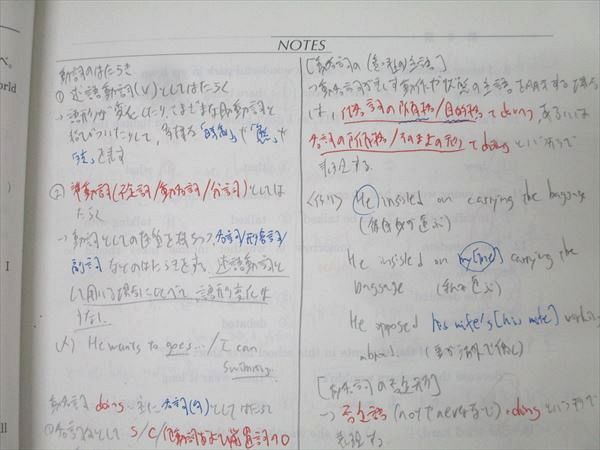 NOTES
動詞のはたらき
① 述語動詞(V)としてはたらく
→ 語形が変化したり、さまざまな助動詞と
結びついたりして、多様な「時制」や「態」や
「法」を表す
② 準動詞(不定詞/動名詞/分詞)としては
たらく
→ 動詞としての性質を持ちつつ名詞/形容詞/
副詞などのはたらきをする。述語動詞と
して用いる場合にくらべて語形変化は
少ない
He wants to goes.../I can
swimming.
動名詞 doing 主に名詞(句)としてはたらく
① 名詞として S/C/他動詞および前置詞のO
[動名詞の(意味上の主語)]
→ 動名詞が表す動作や状態の主語を表す場合
は、代名詞の所有格/目的格 + doing あるいは
名詞の所有格/そのままの形 + doing という形で
表現する。
<例> He insisted on carrying the baggage
(彼自身が運ぶ)
He insisted on my[me] carrying the
baggage (私が運ぶ)
He opposed his wife's[his wife] working
abroad (妻が海外で働く)
[動名詞の否定形]
→ 否定語(notやneverなど) + doing という形で
表現する